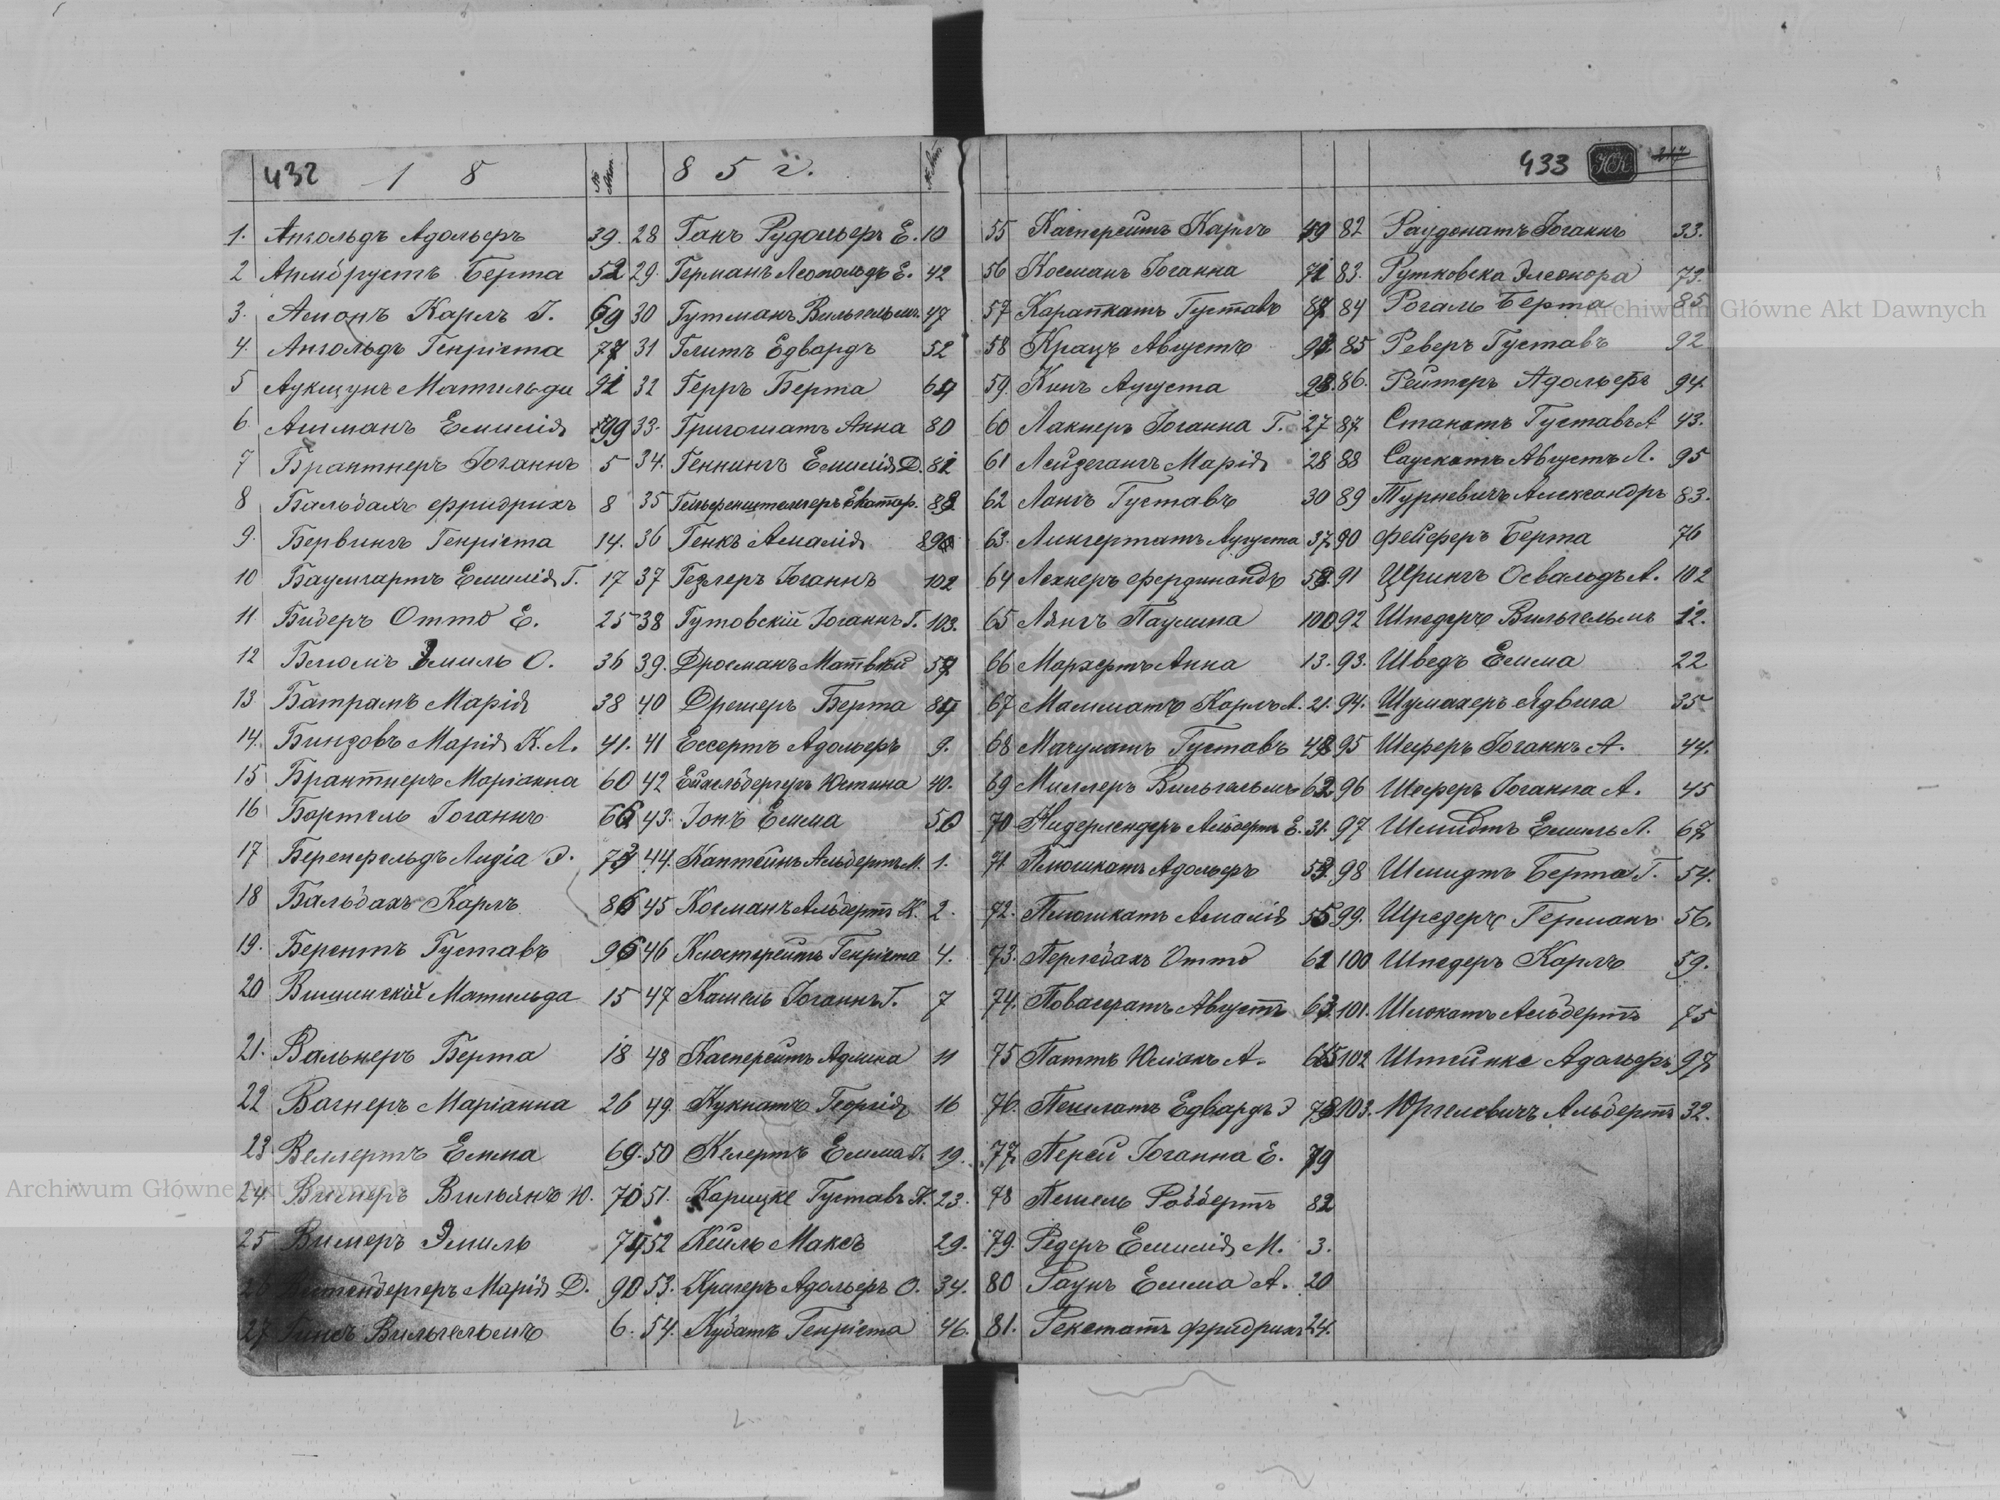 432 18
№ Акт.
1. Ангольдъ Адольфъ 39.
2 Армбрустъ Берта 52
3. Амонъ Карлъ Г. 69
4. Ангольдъ Генріета 77
5 Аукщунъ Матильда 91
6. Ашманъ Емилія 99
7 Брантнеръ Іоганнъ 5
8 Бальбахъ Фридрихъ 8
9. Бервингъ Генріета 14.
10 Баумгартъ Емилія Г. 17
11 Бидеръ Отто Е. 25
12 Бемъ Эмиль О. 36
13 Батрамъ Марія 38
14. Биндовъ Марія К. Л. 41.
15 Брантнеръ Маріанна 60
16 Бартель Іоганнъ 66
17 Беренфельдъ Лидіа Э. 73
18 Бальбахъ Карлъ 86
19. Берентъ Густавъ 96
20 Вишинскій Матильда 15
21. Вальнеръ Берта 18
22 Вагнеръ Маріанна 26
23 Веллертъ Емма 69.
24 Вагнеръ Вильямъ Ю. 70
25 Вимеръ Эмиль 74
26 Марія Д. 90
27 Вильгельмъ 6.
85 г.
№ Акт.
28 Ганъ Рудольфъ Е. 10
29. Германъ Леопольдъ Е. 42
30 Гутманъ Вильгельмъ 47
31 Глитъ Едвардъ 52
32 Герръ Берта 64
33. Григошатъ Анна 80
34. Геннингъ Емилія Д. 81
35 Екатер. 88
36 Генкъ Амалія 89
37 Гезлеръ Іоганнъ 102
38 Гутовскій Іоганнъ Г. 103.
39. Дросманъ Матвѣй 57
40 Дрешеръ Берта 84
41 Ессертъ Адольфъ 9.
42 Ейхельбергеръ Юстина 40.
43. Іонъ Емма 50
44. Каптейнъ Альбертъ М. 1.
45 Косманъ Альбертъ К. 2.
46 Клюстерейтъ Генріета 4.
47 Кашель Іоганнъ Г. 7
48 Касперейтъ Адлина 11
49. Кукнатъ Георгій 16
50 Келертъ Емма Г. 19.
51. Карицке Густавъ К. 23.
52 Кейль Максъ 29.
53. Кригеръ Адольфъ О. 34.
54. Кубатъ Генріета 46.
433
НК
55 Касперейтъ Карлъ 49
56 Косманъ Іоганна 71
57 Карапкатъ Густавъ 87
58 Крацъ Августъ 93
59. Кинъ Августа 98.
60 Лакнеръ Іоганна Г. 27
61 Лейдегангъ Марія 28
62 Лангъ Густавъ 30
63. Лингертатъ Августа 37
64 Лехнеръ Фердинандъ 58
65 Лянгъ Паулина 100
66 Маркертъ Анна 13.
67 Малиматъ Карлъ А. 21.
68 Мачулатъ Густавъ 48
69 Миллеръ Вильгельмъ 62
70 Нидерлендеръ Альбертъ Е. 31.
71 Плюшкатъ Адольфъ 53
72. Плюшкатъ Амалія 55
73. Перлебахъ Отто 61
74. Повасератъ Августъ 63
75 Паттъ Юліанъ А. 65
76. Пешлатъ Едвардъ Э 78
77. Перси Іоганна Е. 79
78 Пешель Робертъ 82
79. Редеръ Емилія М. 3.
80 Раунъ Емма А. 20
81. Рекстатъ Фридрихъ 24.
82 Раудонатъ Іоганнъ 33.
83. Рутковска Элеонора 73.
84 Рогаль Берта 85
85 Реверъ Густавъ 92
86. Рейтеръ Адольфъ 94
87 Станатъ Густавъ А 43.
88 Саускатъ Августъ Л. 95
89 Турневичъ Александръ 83.
90 Фейферъ Берта 76
91 Церингъ Освальдъ А. 102
92 Шредеръ Вильгельмъ 12.
93. Шведъ Емма 22
94. Шумахеръ Ядвига 35
95 Шеферъ Іоганнъ А. 44.
96 Шеферъ Іоганна А. 45
97 Шмидтъ Емиль Л. 67
98 Шмидтъ Берта Г. 54.
99. Шредеръ Германъ 56.
100 Шнедеръ Карлъ 59.
101. Шлокатъ Альбертъ 75
102 Штейнке Адольфъ 97
103. Юргелевичъ Альбертъ 32.
Archiwum Główne Akt Dawnych
Archiwum Główne Akt Dawnych